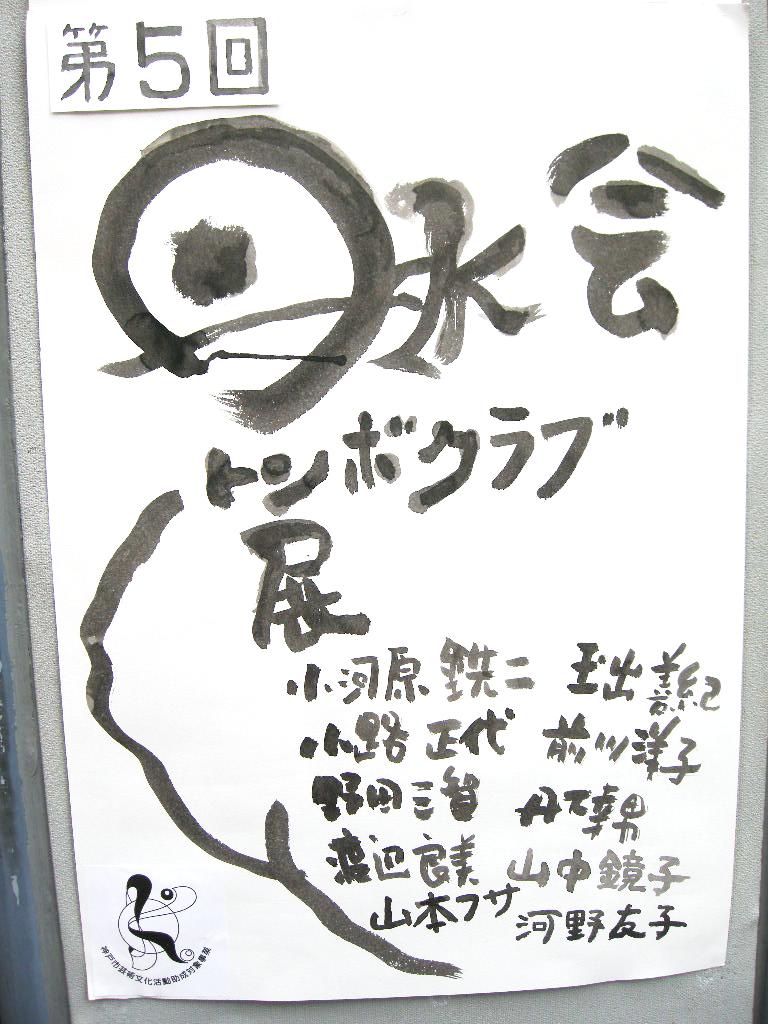 第5回
水会
トンボクラブ
展
小河原 鉄二 玉出 善紀
小路 正代 前川 洋子
野田 三賀 丹下 幸男
渡辺 良美 山中 鏡子
山本フサ 河野友子
神戸市芸術文化活動助成対象事業